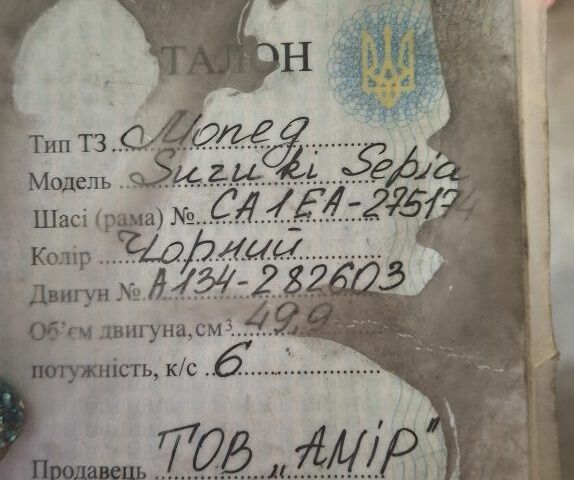 ТАЛОН
Тип ТЗ Мопед
Модель Suzuki Sepia
Шасі (рама) № CA1EA-275174
Колір Чорний
Двигун № A134-282603
Об'єм двигуна, см³ 49,9
потужність, к/с 6
Продавець ТОВ „АМІР"